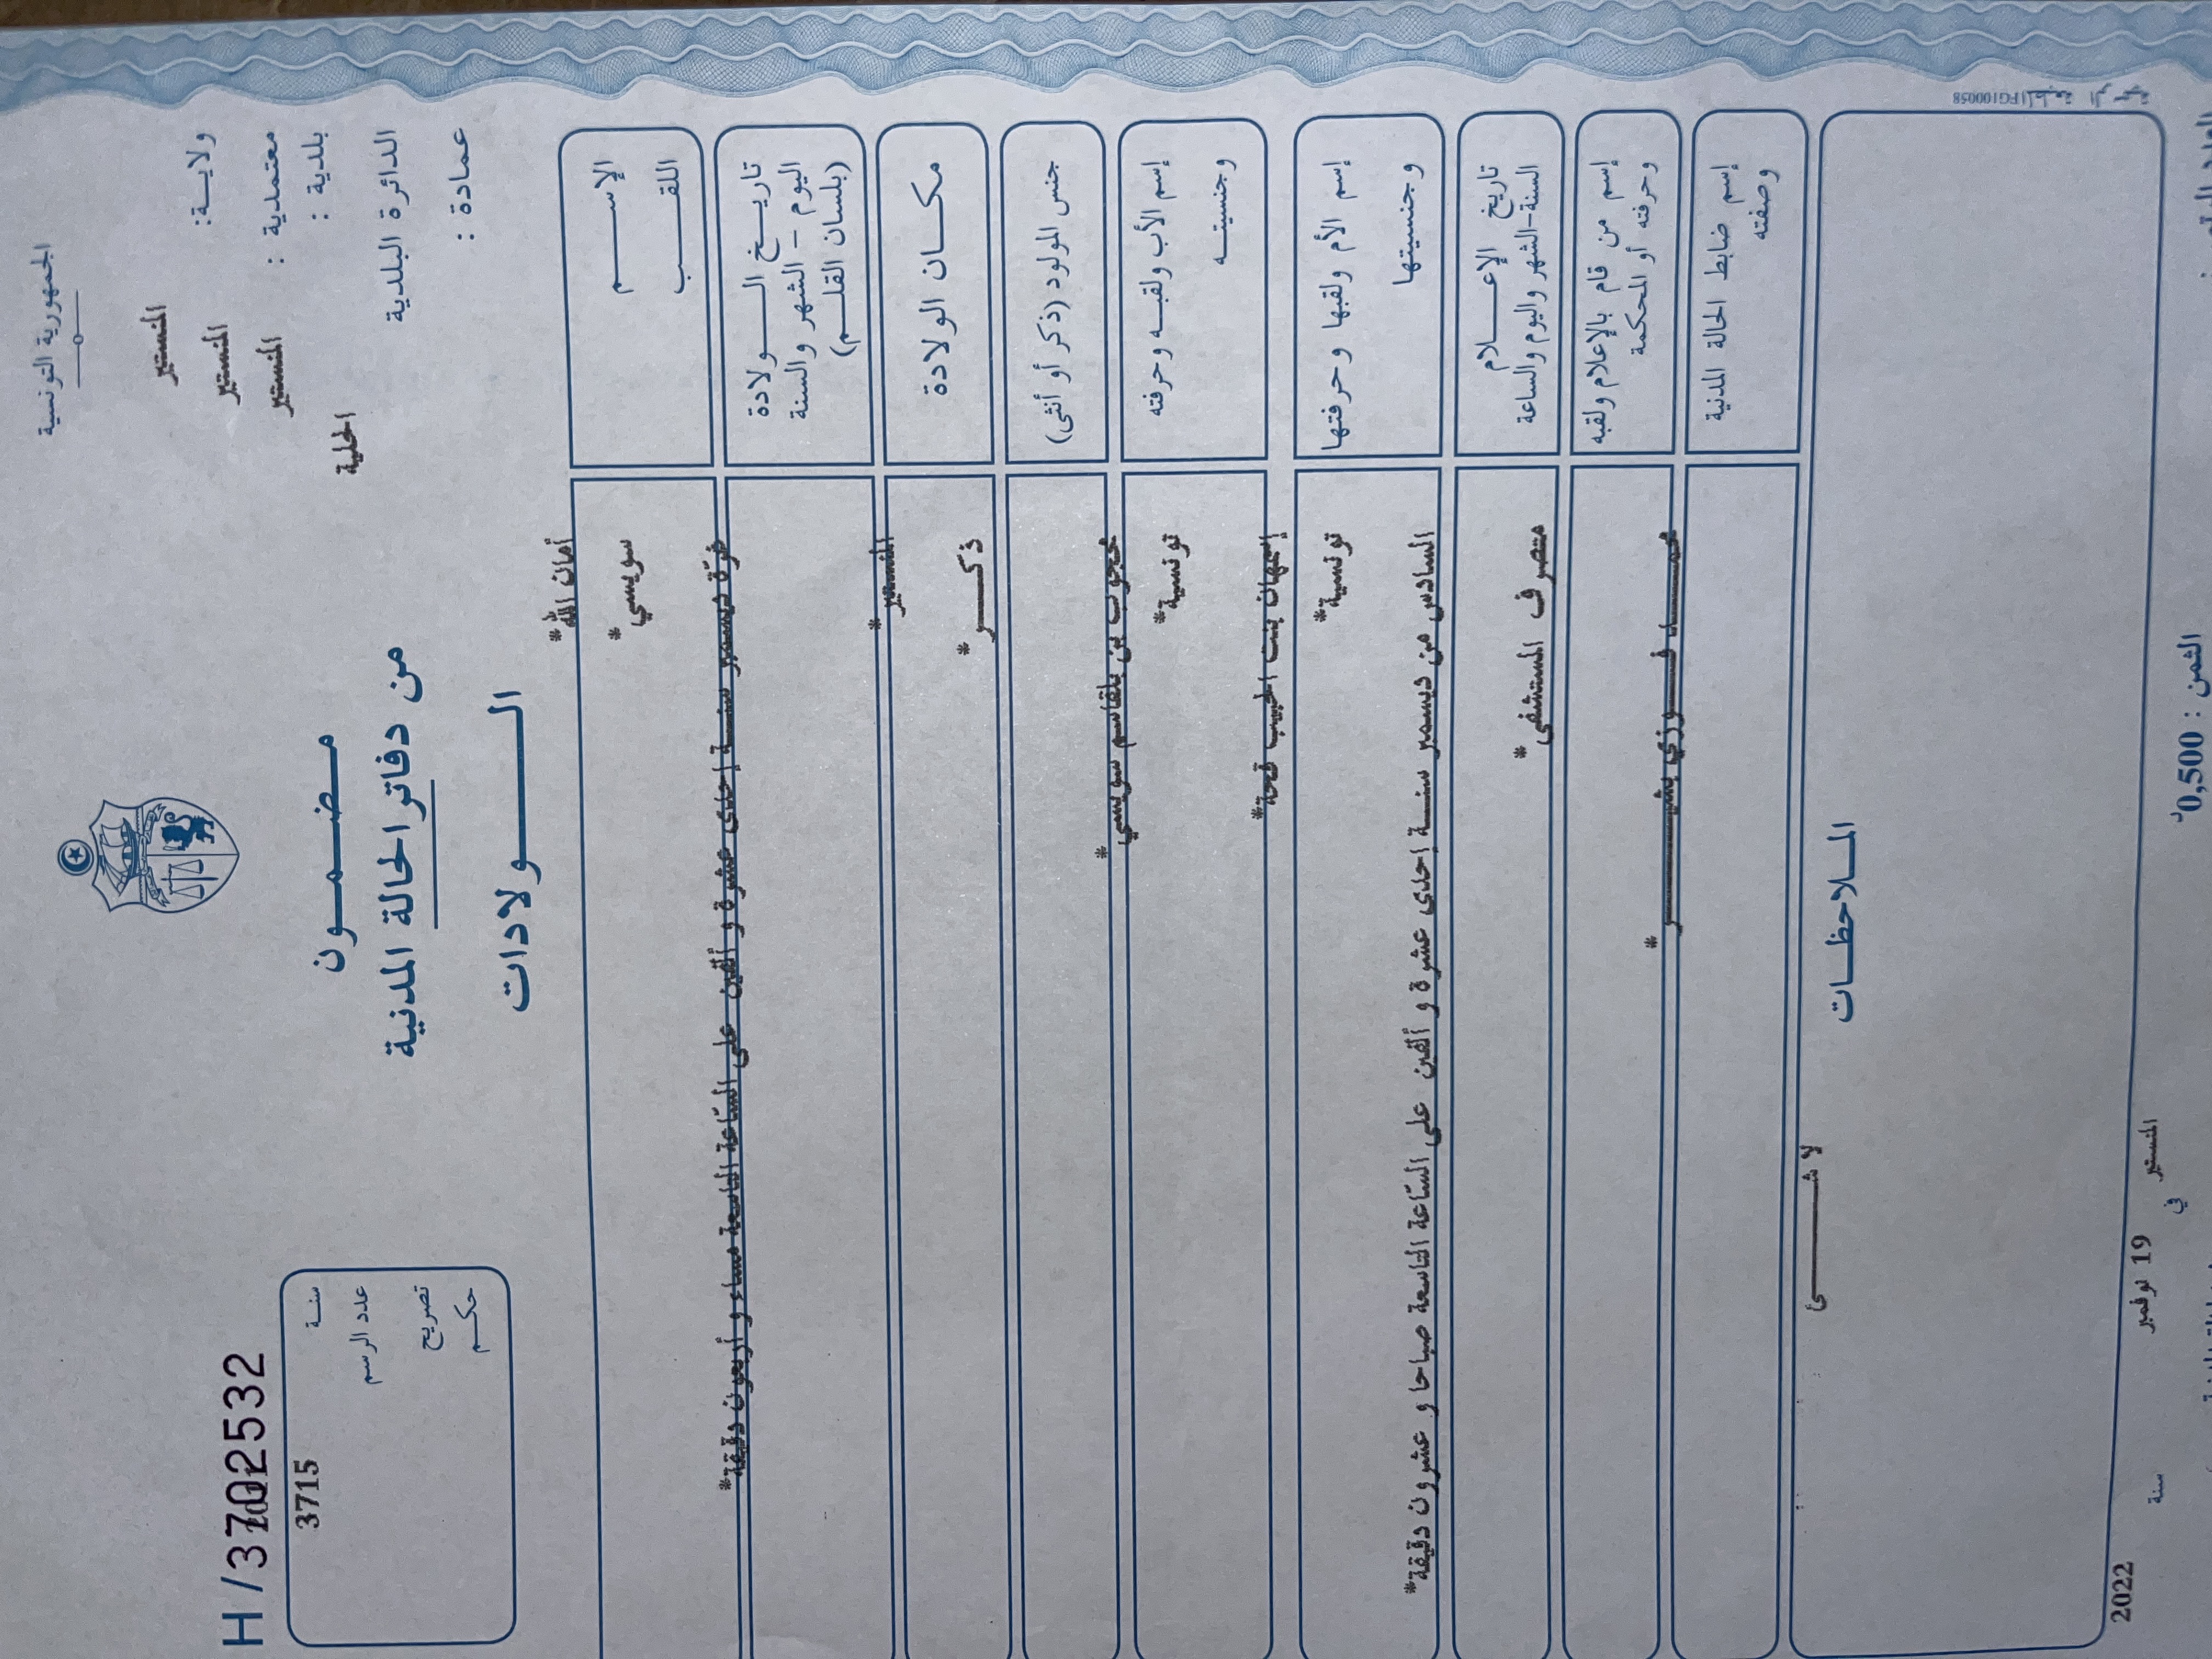 الجمهورية التونسية
ولايـــة: المنستير
معتمدية : المنستير
بلدية : المنستير
الدائرة البلدية المحلية
عمادة :
مـضـمـــون
من دفاتر الحالة المدنية
الـــــــولادات
H/3702532
سنـة
عدد الرسم 3715
تصريح
حكـم
الإســـــم أمان الله*
اللقـــــب سويسي*
تاريـــخ الـــــولادة
اليوم – الشهر والسنة
(بلسان القلـــم)
غرّة ديسمبر سنـــة إحدى عشرة و ألفين على السّاعة التاسعة مساء و أربعون دقيقة*
مكـــان الولادة المنستير*
جنس المولود (ذكر أو أنثى) ذكـــــر*
إسم الأب ولقبـه وحرفته محجوب بن بلقاسم سويسي*
وجنسيتـــه تونسية*
إسم الأم ولقبها وحرفتها إسمهان بنت الحبيب قحة*
وجنسيتها تونسية*
تاريخ الإعـــــلام
السنة-الشهر واليوم والساعة
السادس من ديسمبر سنـــة إحدى عشرة و ألفين على السّاعة التاسعة صباحا و عشرون دقيقة*
إسم من قام بالإعلام ولقبه
وحرفته أو المحكمة
متصرف المستشفى*
إسم ضابط الحالة المدنية
وصفته
محمـــــد فـــوزي بشيـــــــر*
المـلاحظـــات
لا شـــــــــئ
المنستير في 19 نوفمبر سنة 2022
الثمن : 0,500د